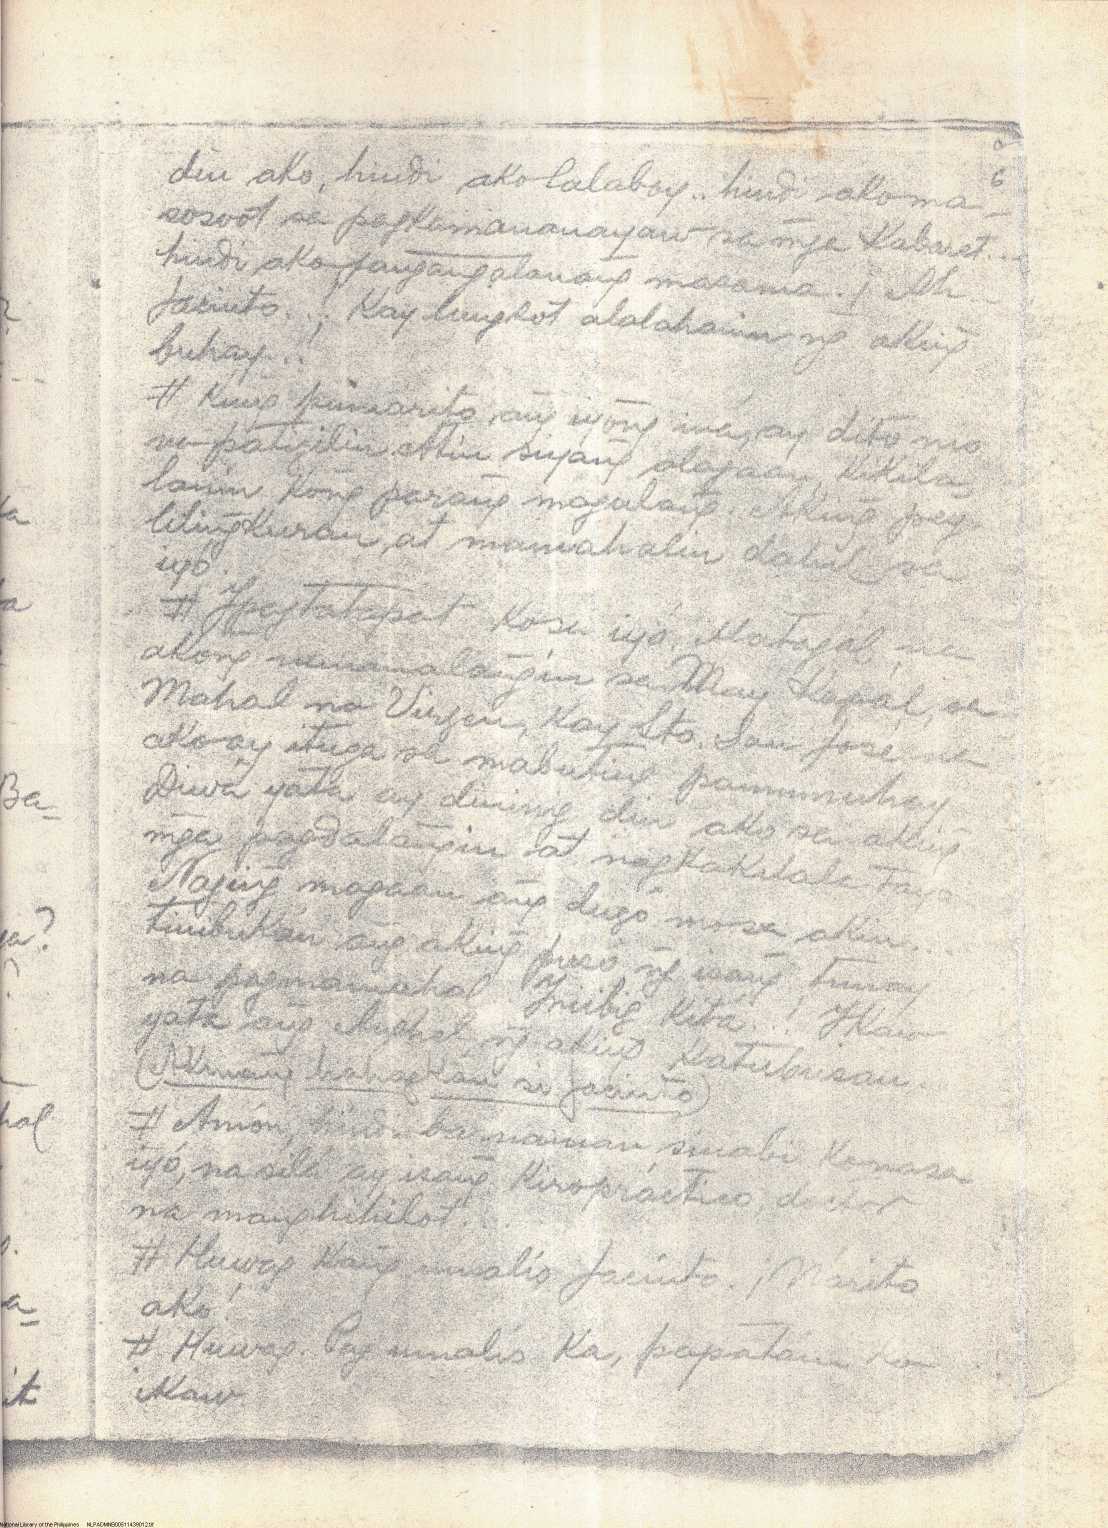 6
din ako, hindi ako lalaboy.. hindi ako ma-
sosoot sa pagkamananayaw sa mga Kabaret...
hindi ako pangangalanang masama. ! Ah
Jacinto...! Kay lungkot alalahanin ng aking
buhay..!
# Kung pumarito, ang iyong ina, ay dito mo
na patigilin. Atin siyang alagaan, Kikila-
lanin Kong parang magulang. Aking pag-
lilingkuran, at mamahalin dahil sa
iyo.
# Ipagtatapat Ko sa iyo. Matagal na
akong nanamalangin sa May Kapal, sa
Mahal na Virgen, Kay Sto. San Jose na
ako ay ituga sa mabuting pamumuhay
Diwa yata ay dininig din ako sa aking
mga pagdalangin at nagkakilala tayo
Naging magaan ang dugo mo sa akin...
tinibukan ang aking puso ng isang tunay
na pagmamahal Iniibig Kita..! Ikaw
yata ang Anghel ng aking Katubusan
(Akmang hahagkan si Jacinto)
# Amon, hindi ba naman sinabi Ko na sa
iyo, na sila ay isang Kiropractico, doctor
na manghihilot...
# Huwag Kang umalis Jacinto. ¡ Narito
ako!
# Huwag. Pag umalis Ka, papatain Ko
ikaw
Ba-
ya?
hal
it
National Library of the Philippines NLPADMNB00511439012.tif